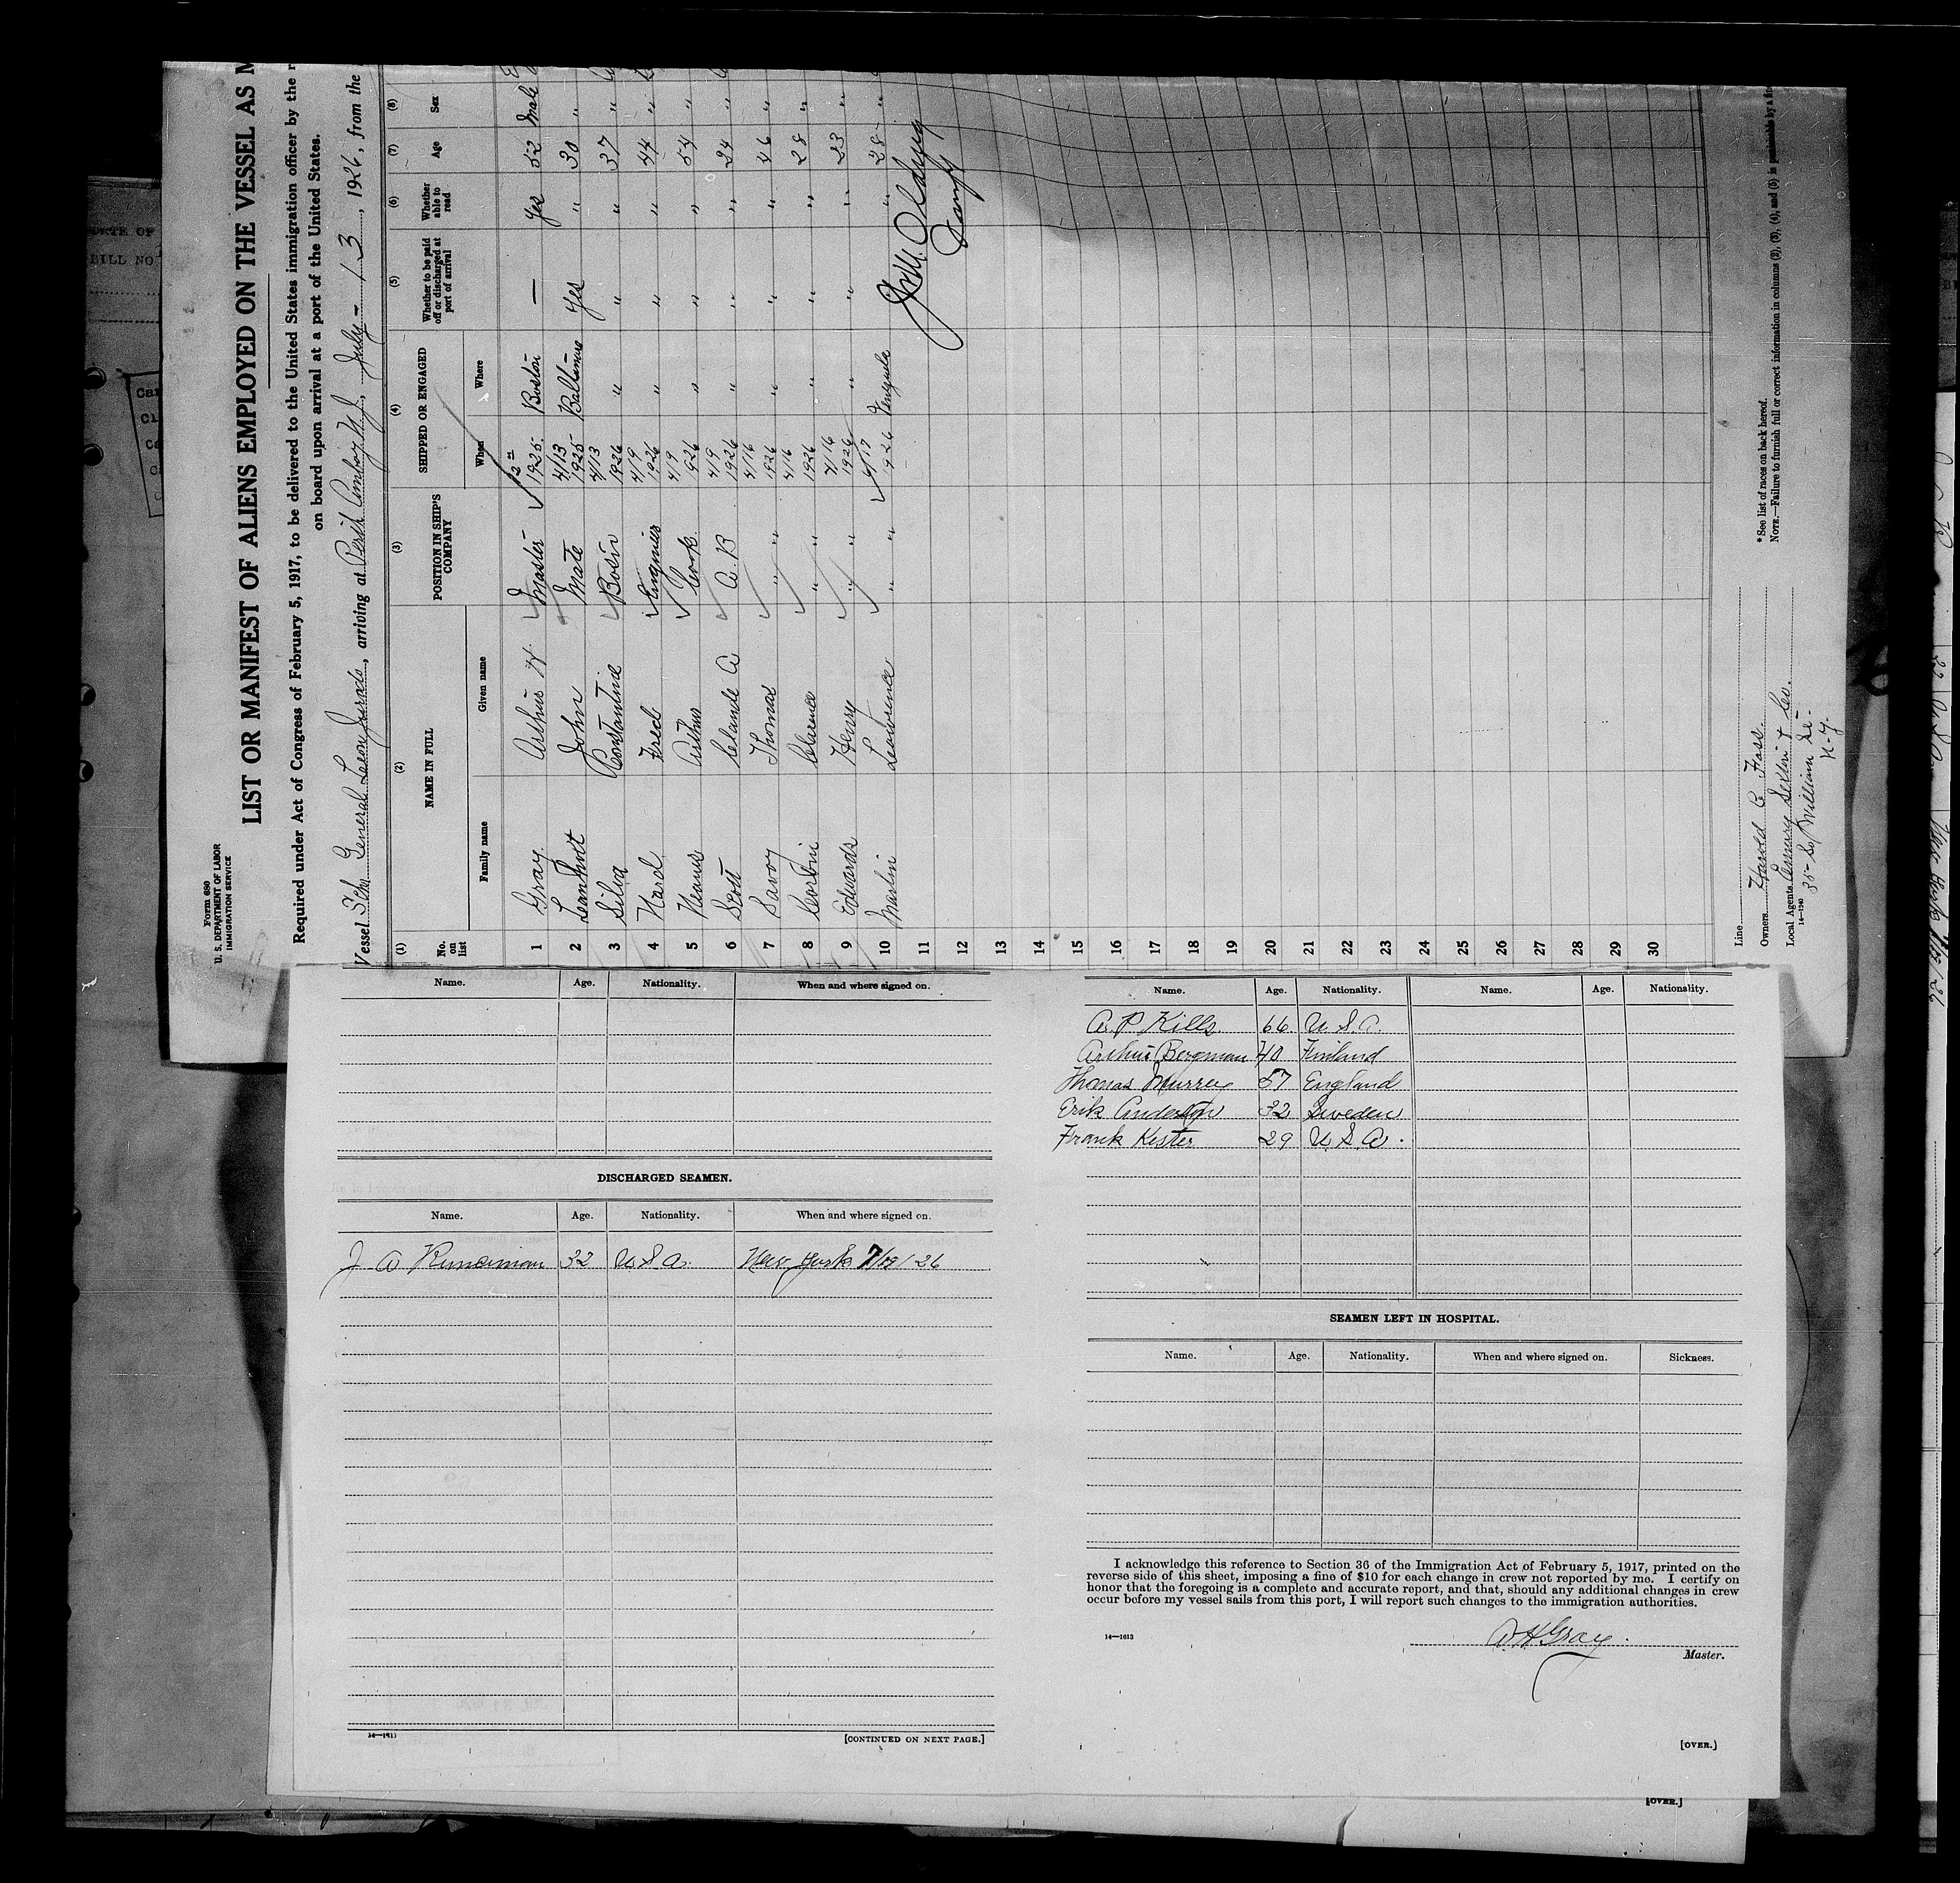 Form 680
U. S. DEPARTMENT OF LABOR
IMMIGRATION SERVICE
LIST OR MANIFEST OF ALIENS EMPLOYED ON THE VESSEL AS M
Required under Act of Congress of February 5, 1917, to be delivered to the United States immigration officer by the r
on board upon arrival at a port of the United States.
Vessel Sch. General Leon Jurado, arriving at Perth Amboy N.J., July - 13, 1926, from the
(1) (2) (3) (4) (5) (6) (7) (8)
No. on list NAME IN FULL POSITION IN SHIP'S COMPANY SHIPPED OR ENGAGED Whether to be paid off or discharged at port of arrival Whether able to read Age Sex
Family name Given name When Where
1 Gray Arthur H Master 1925 Boston — Yes 52 Male
2 John Mate 4/13 1925 Baltimore Yes " 30 "
3 Silva Constantine Bosin 4/13 1926 " " " 37 "
4 Ward Fred Engineer 4/9 1926 " " " 44 "
5 Arthur Cook 4/9 1926 " " " 54 "
6 Scott Claude A A.B 4/9 1926 " " " 24 "
7 Savoy Thomas " " 4/16 1926 " " " 46 "
8 Corbin Clarence " " 4/16 1926 " " " 28 "
9 Edwards Henry " " 4/16 1926 " " " 23 "
10 Martin Lawrence " " 4/17 1926 " 28 "
11
12
13
14
15
16
17
18
19
20
21
22
23
24
25
26
27
28
29
30
Line
Owners Harold C Foss.
Local Agents
14—1240
35- So. William St-
N-Y.
* See list of races on back hereof.
NOTE.—Failure to furnish full or correct information in columns (2), (3), (4), and (5) is punishable by a fine
Name. Age. Nationality. When and where signed on.
DISCHARGED SEAMEN.
Name. Age. Nationality. When and where signed on.
J A 32 U S A. New York
14—1611
[CONTINUED ON NEXT PAGE.]
Name. Age. Nationality. Name. Age. Nationality.
A. P Kills. 66 U S A.
Arthur Bergman 40 Finland
Thomas Murree 57 England
Erik Anderson 32 Sweden
Frank Kester 29 U S A.
SEAMEN LEFT IN HOSPITAL.
Name. Age. Nationality. When and where signed on. Sickness.
I acknowledge this reference to Section 36 of the Immigration Act of February 5, 1917, printed on the
reverse side of this sheet, imposing a fine of $10 for each change in crew not reported by me. I certify on
honor that the foregoing is a complete and accurate report, and that, should any additional changes in crew
occur before my vessel sails from this port, I will report such changes to the immigration authorities.
14—1613
A H Gray.
Master.
[OVER.]
[OVER.]
BILL NO